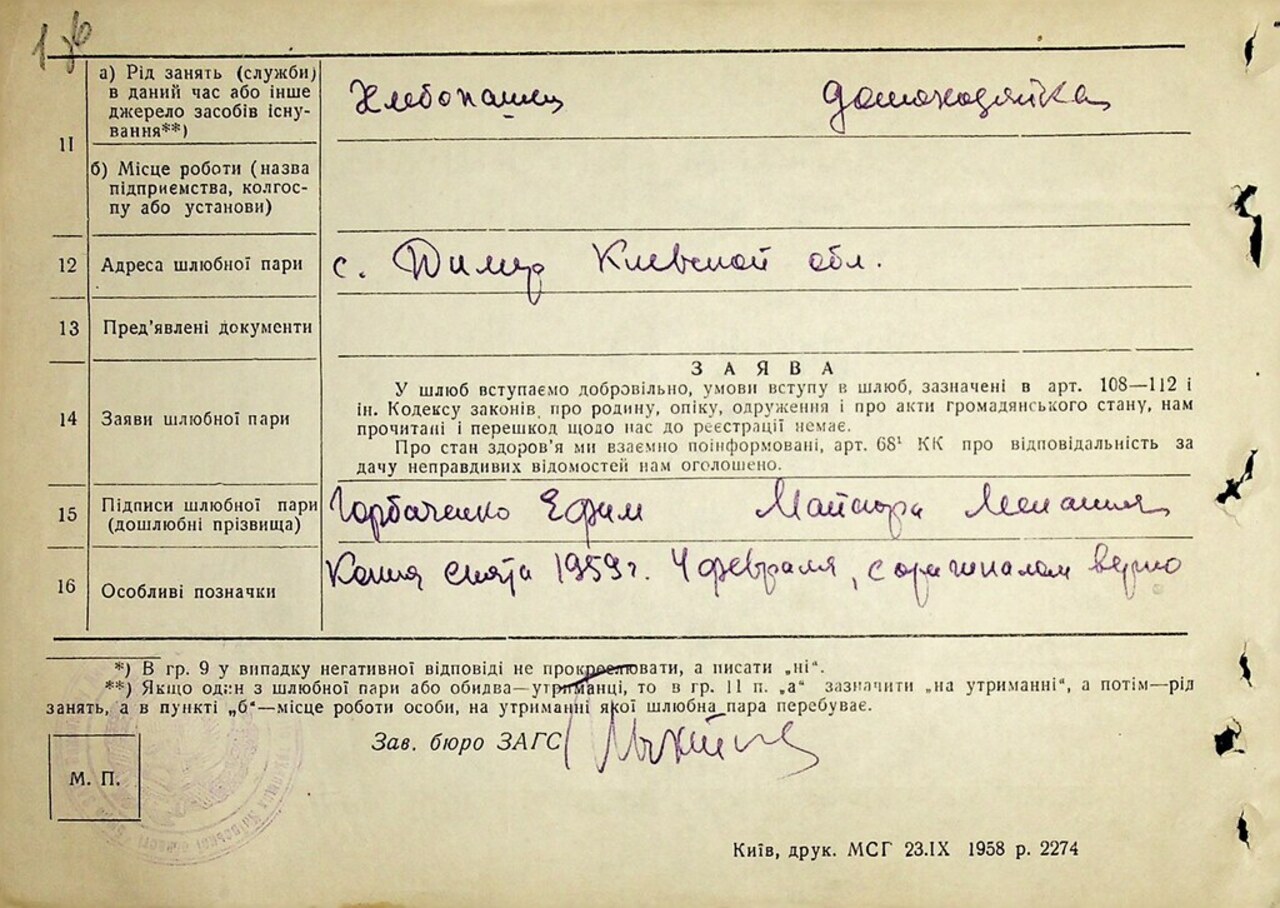 а) Рід занять (служби)
в даний час або інше
джерело засобів існу-
вання**)
11
Хлебопашец
домохозяйка
б) Місце роботи (назва
підприємства, колгос-
пу або установи)
12 Адреса шлюбної пари с. Дымер Киевской обл.
13 Пред'явлені документи
14 Заяви шлюбної пари
ЗАЯВА
У шлюб вступаємо добровільно, умови вступу в шлюб, зазначені в арт. 108—112 і
ін. Кодексу законів про родину, опіку, одруження і про акти громадянського стану, нам
прочитані і перешкод щодо нас до реєстрації немає.
Про стан здоров'я ми взаємно поінформовані, арт. 68¹ КК про відповідальність за
дачу неправдивих відомостей нам оголошено.
15 Підписи шлюбної пари
(дошлюбні прізвища)
Горбаченко Ефим Майстра Мелания
16 Особливі позначки
Копия снята 1959 г. 4 февраля, с оригиналом верно
*) В гр. 9 у випадку негативної відповіді не прокреслювати, а писати „ні“.
**) Якщо один з шлюбної пари або обидва—утриманці, то в гр. 11 п. „а“ зазначити „на утриманні“, а потім—рід
занять, а в пункті „б“—місце роботи особи, на утриманні якої шлюбна пара перебуває.
Зав. бюро ЗАГС
М. П.
Київ, друк. МСГ 23.IX 1958 р. 2274